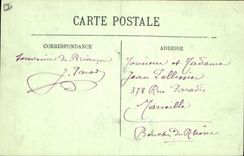 CARTE POSTALE
CORRESPONDANCE
ADRESSE
Souvenir de Briançon
Monsieur et Madame
Jean Pellissier
378 Rue Paradis
Marseille
Bouches du Rhône